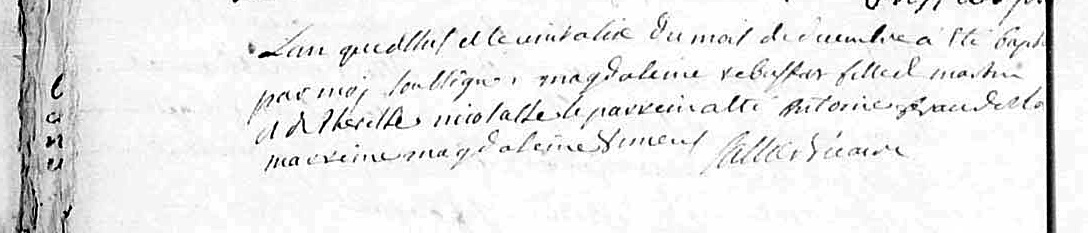 L'an que dessus et le vint a sixe du mois de decembre a été bapt
par moy soussigné magdaleine rebuffat fille de martin
et de theresse nicolasse le parrein a eté Antoine
marreine magdaleine Simens vicaire